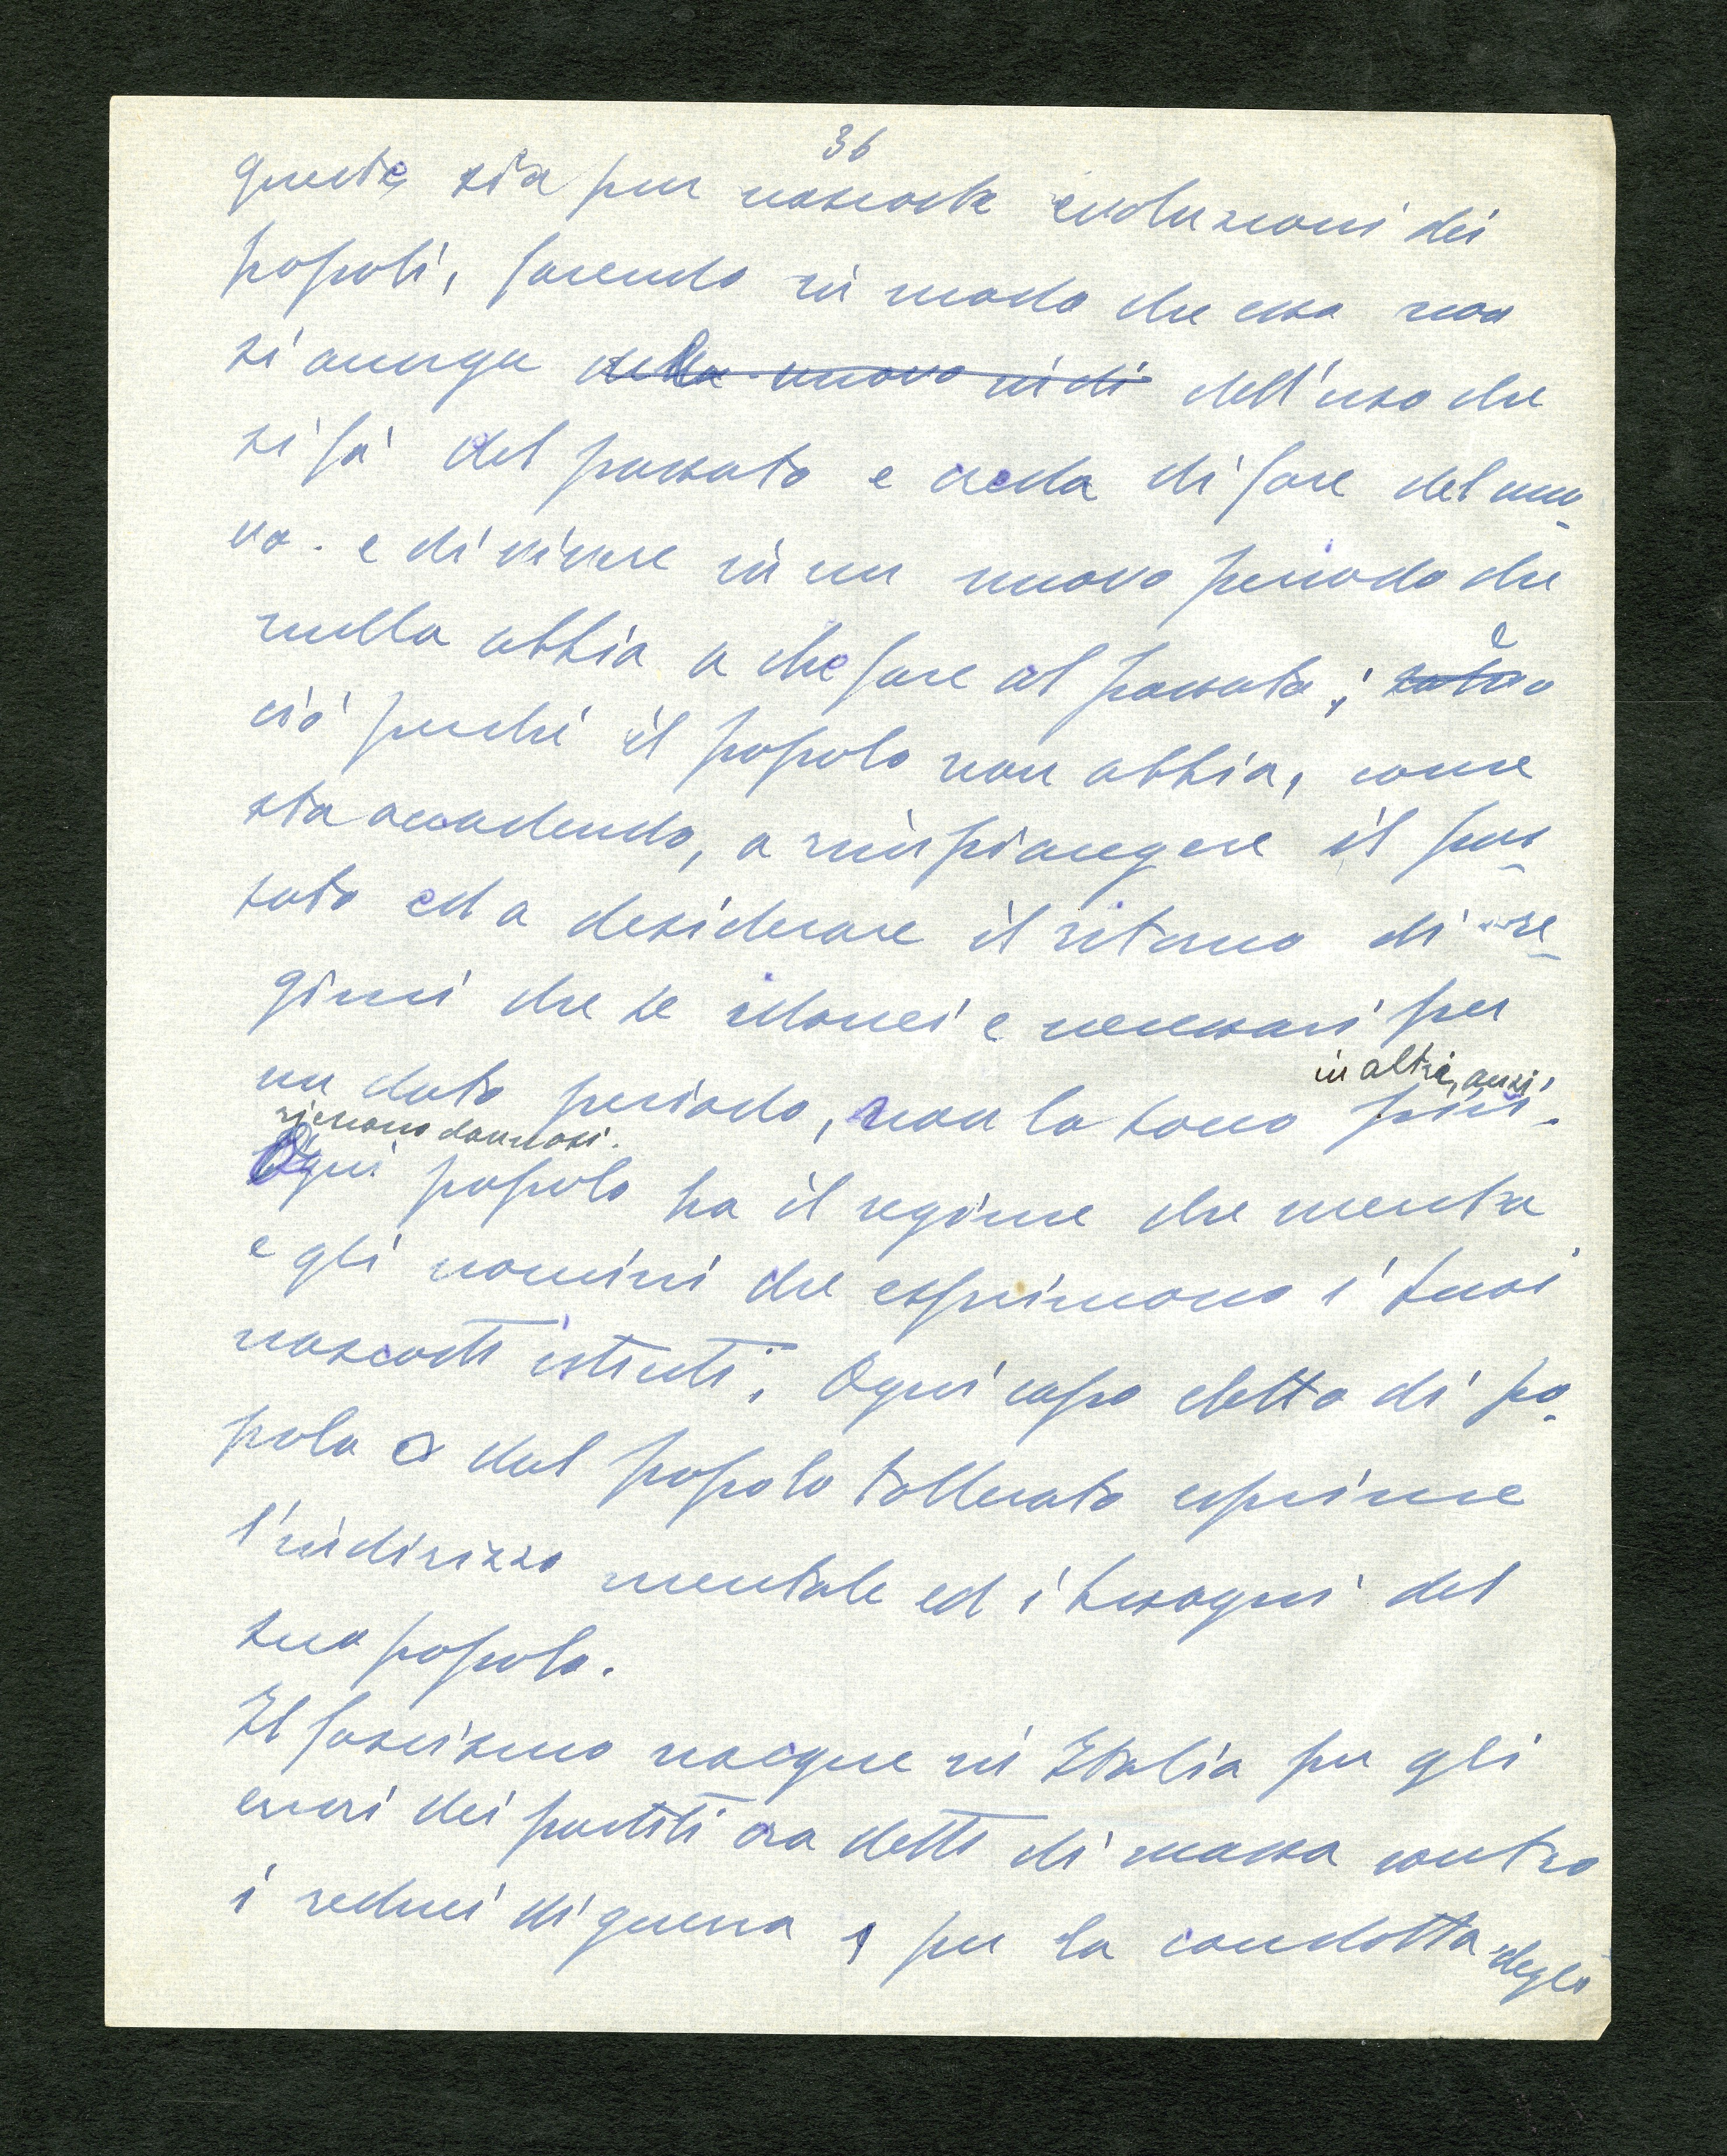 36
queste sia pur nascoste evoluzioni dei
popoli, facendo in modo che essa non
si accorga della nuova dell'uso che
si fà del passato e creda di fare del nuo-
vo. e di vivere in un nuovo periodo che
nulla abbia a che fare al passato; e
ciò perchè il popolo non abbia, come
sta accadendo, a rimpiangere il pas-
sato ed a desiderare il ritorno di re-
gimi che se idonei e necessari per
un dato periodo, non lo sono più in altri, anzi,
riescono dannosi.
Ogni popolo ha il regime che merita
e gli uomini che esprimono i suoi
nascosti istinti. Ogni capo eletto di po-
polo o dal popolo tollerato esprime
l'indirizzo mentale ed i bisogni del
suo popolo.
Il fascismo nacque in Italia per gli
errori dei partiti ora detti di massa contro
i reduci di guerra, per la condotta degli